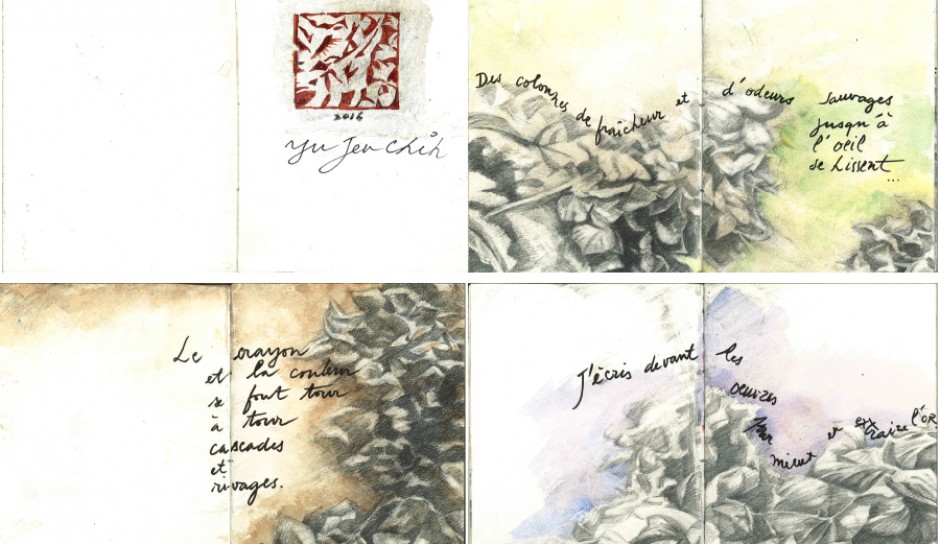 2016
Yu Jen Chih
Des colonnes de fraîcheur et d'odeurs sauvages
jusqu'à
l'oeil
se hissent
...
Le crayon
et la couleur
se font tour
à tour
cascades
et
rivages.
J'écris devant les
oeuvres
mieux et extraire l'or